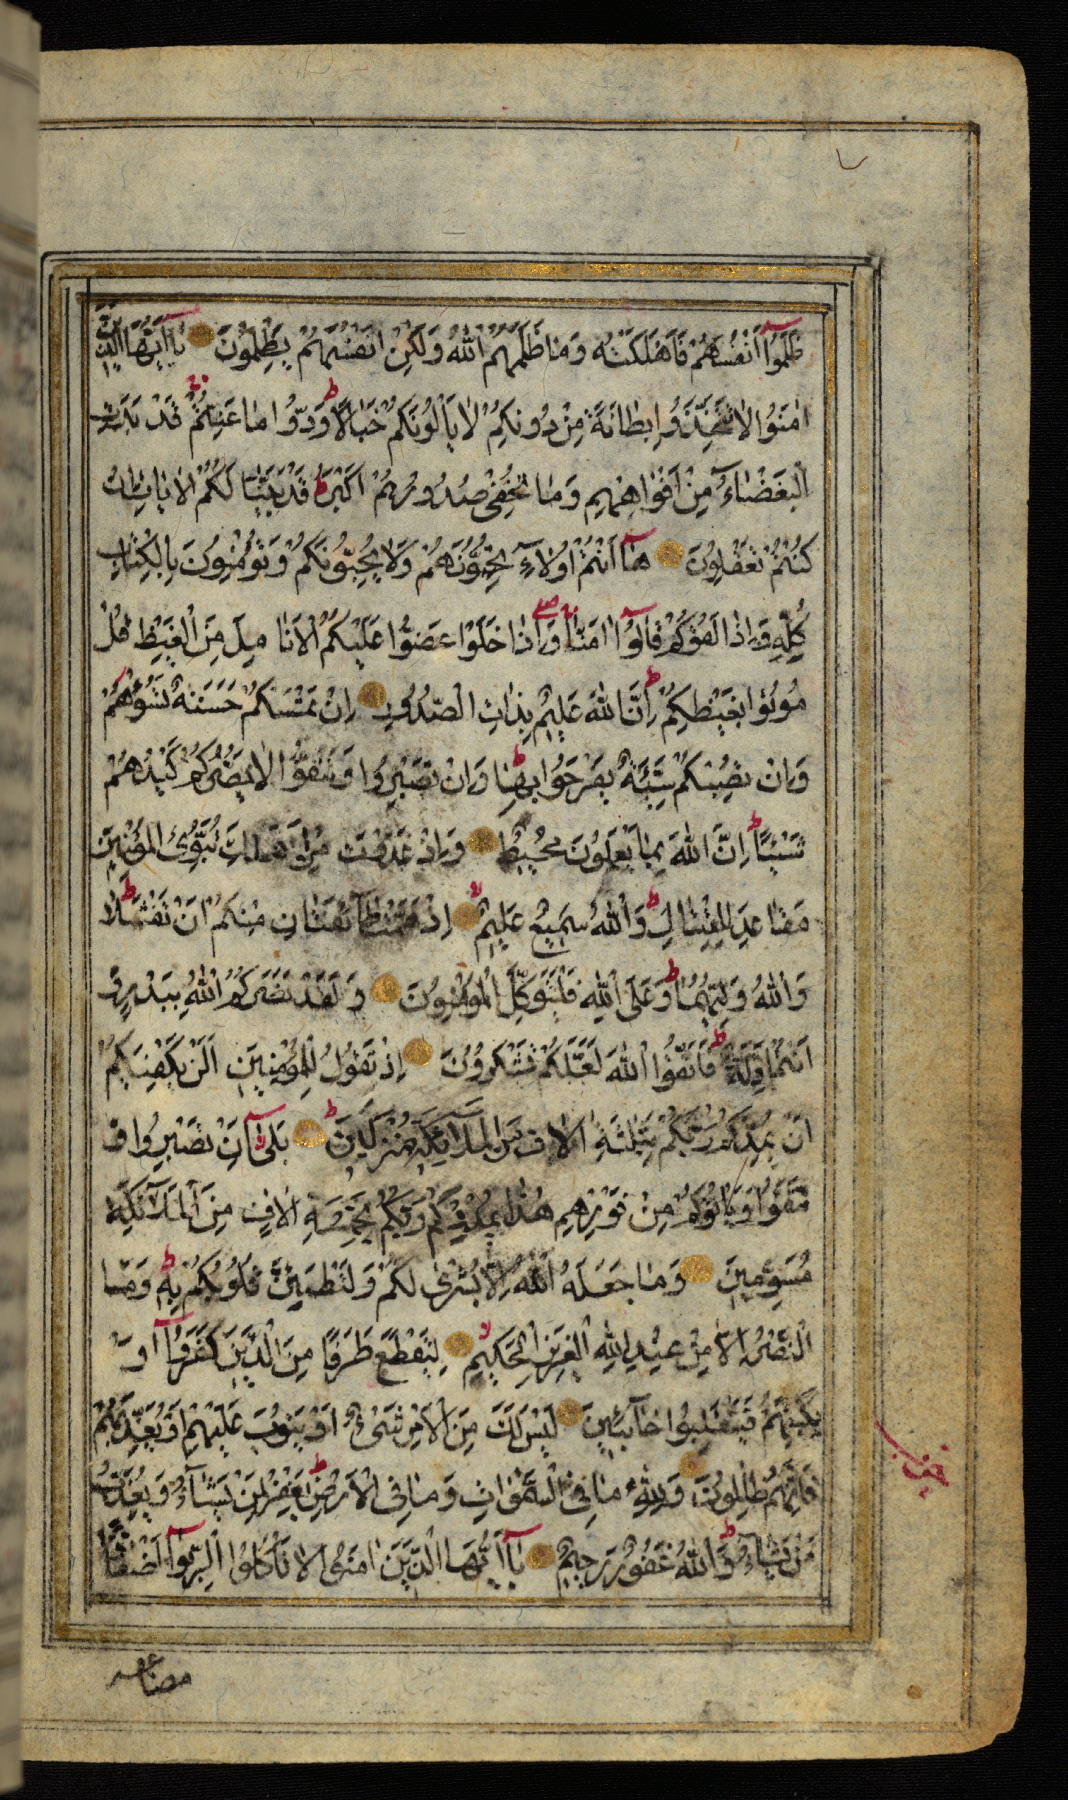 ظَلَمُوا أَنْفُسَهُمْ فَأَهْلَكَتْهُ وَمَا ظَلَمَهُمُ اللَّهُ وَلَكِنْ أَنْفُسَهُمْ يَظْلِمُونَ يَاأَيُّهَا الَّذِينَ
اٰمَنُوا لَا تَتَّخِذُوا بِطَانَةً مِنْ دُونِكُمْ لَا يَأْلُونَكُمْ خَبَالًا وَدُّوا مَا عَنِتُّمْ قَدْ بَدَتِ
الْبَغْضَاءُ مِنْ أَفْوَاهِهِمْ وَمَا تُخْفِي صُدُورُهُمْ أَكْبَرُ قَدْ بَيَّنَّا لَكُمُ الْاٰيَاتِ إِنْ
كُنْتُمْ تَعْقِلُونَ هَاأَنْتُمْ أُولَاءِ تُحِبُّونَهُمْ وَلَا يُحِبُّونَكُمْ وَتُؤْمِنُونَ بِالْكِتَابِ
كُلِّهِ وَإِذَا لَقُوكُمْ قَالُوا اٰمَنَّا وَإِذَا خَلَوْا عَضُّوا عَلَيْكُمُ الْأَنَامِلَ مِنَ الْغَيْظِ قُلْ
مُوتُوا بِغَيْظِكُمْ إِنَّ اللَّهَ عَلِيمٌ بِذَاتِ الصُّدُورِ إِنْ تَمْسَسْكُمْ حَسَنَةٌ تَسُؤْهُمْ
وَإِنْ تُصِبْكُمْ سَيِّئَةٌ يَفْرَحُوا بِهَا وَإِنْ تَصْبِرُوا وَتَتَّقُوا لَا يَضُرُّكُمْ كَيْدُهُمْ
شَيْئًا إِنَّ اللَّهَ بِمَا يَعْمَلُونَ مُحِيطٌ وَإِذْ غَدَوْتَ مِنْ أَهْلِكَ تُبَوِّئُ الْمُؤْمِنِينَ
مَقَاعِدَ لِلْقِتَالِ وَاللَّهُ سَمِيعٌ عَلِيمٌ إِذْ هَمَّتْ طَائِفَتَانِ مِنْكُمْ أَنْ تَفْشَلَا
وَاللَّهُ وَلِيُّهُمَا وَعَلَى اللَّهِ فَلْيَتَوَكَّلِ الْمُؤْمِنُونَ وَلَقَدْ نَصَرَكُمُ اللَّهُ بِبَدْرٍ وَ
أَنْتُمْ أَذِلَّةٌ فَاتَّقُوا اللَّهَ لَعَلَّكُمْ تَشْكُرُونَ إِذْ تَقُولُ لِلْمُؤْمِنِينَ أَلَنْ يَكْفِيَكُمْ
أَنْ يُمِدَّكُمْ رَبُّكُمْ بِثَلٰثَةِ اٰلَافٍ مِنَ الْمَلَائِكَةِ مُنْزَلِينَ بَلَى إِنْ تَصْبِرُوا وَ
تَتَّقُوا وَيَأْتُوكُمْ مِنْ فَوْرِهِمْ هٰذَا يُمْدِدْكُمْ رَبُّكُمْ بِخَمْسَةِ اٰلَافٍ مِنَ الْمَلَائِكَةِ
مُسَوِّمِينَ وَمَا جَعَلَهُ اللَّهُ إِلَّا بُشْرَى لَكُمْ وَلِتَطْمَئِنَّ قُلُوبُكُمْ بِهِ وَمَا
النَّصْرُ إِلَّا مِنْ عِنْدِ اللَّهِ الْعَزِيزِ الْحَكِيمِ لِيَقْطَعَ طَرَفًا مِنَ الَّذِينَ كَفَرُوا أَوْ
يَكْبِتَهُمْ فَيَنْقَلِبُوا خَائِبِينَ لَيْسَ لَكَ مِنَ الْأَمْرِ شَيْءٌ أَوْ يَتُوبَ عَلَيْهِمْ أَوْ يُعَذِّبَهُمْ
فَإِنَّهُمْ ظَالِمُونَ وَلِلَّهِ مَا فِي السَّمٰوَاتِ وَمَا فِي الْأَرْضِ يَغْفِرُ لِمَنْ يَشَاءُ وَيُعَذِّبُ
مَنْ يَشَاءُ وَاللَّهُ غَفُورٌ رَحِيمٌ يَاأَيُّهَا الَّذِينَ اٰمَنُوا لَا تَأْكُلُوا الرِّبٰوا أَضْعَافًا
مضاعفه